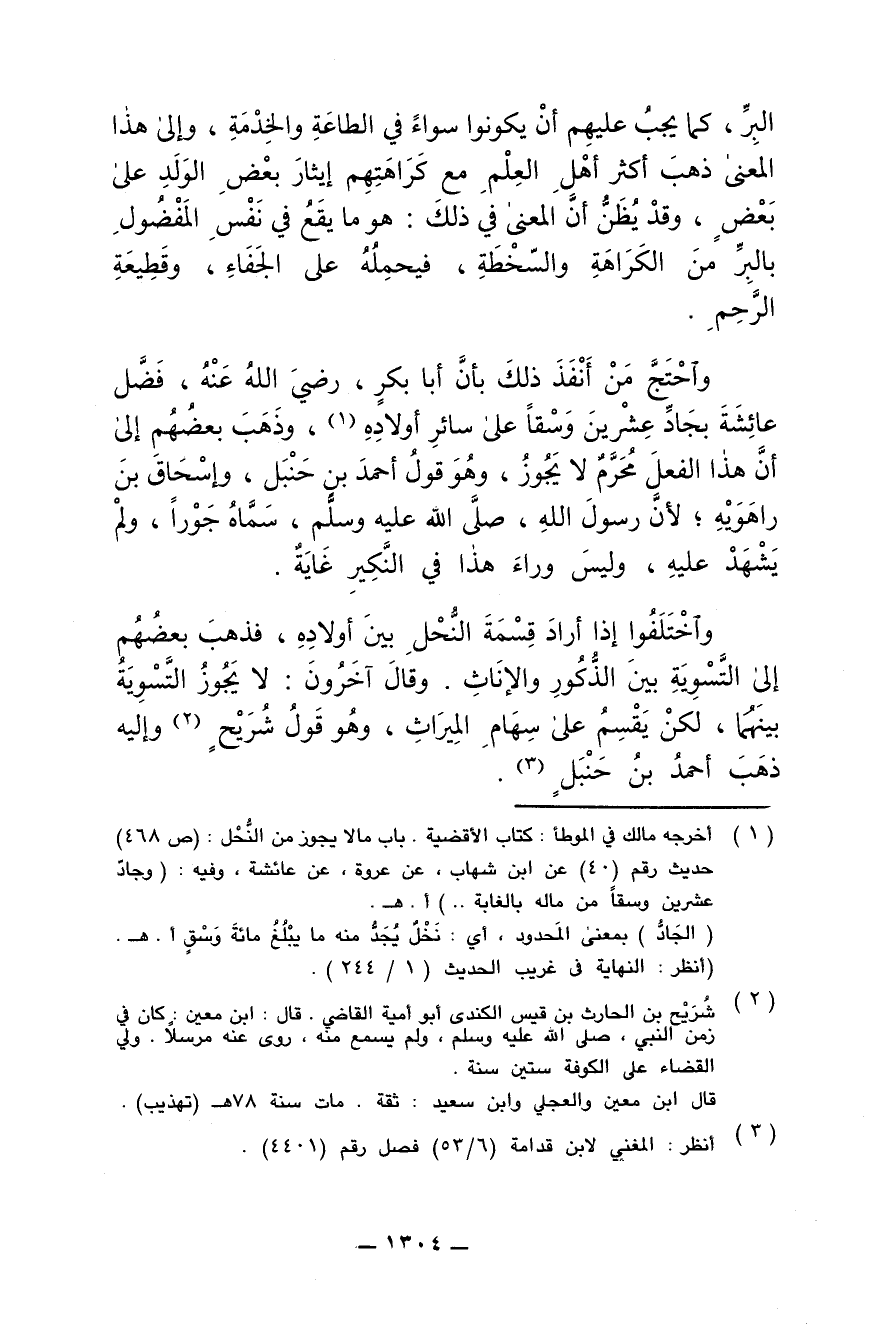 البِرِّ ، كما يجبُ عليهِم أنْ يكونوا سواءً في الطاعَةِ والخِدْمَةِ ، وإلىٰ هذٰا
المعنىٰ ذهبَ أكثر أهْلِ العِلْمِ مع كَرَاهَتِهِم إيثارَ بعْضِ الوَلَدِ علىٰ
بَعْضٍ ، وقدْ يُظَنُّ أنَّ المعنىٰ في ذلكَ : هو ما يقَعُ في نَفْسِ المَفْضُولِ
بالبِرِّ منَ الكَرَاهَةِ والسّخْطَةِ ، فيحمِلُهُ على الجَفَاءِ ، وقَطِيعَةِ
الرَّحِمِ .
وٱحْتَجَّ مَنْ أَنْفَذَ ذلكَ بأنَّ أبا بكرٍ ، رضيَ اللهُ عَنْهُ ، فَضَّل
عائِشَةَ بجَادِّ عِشْرينَ وَسْقاً علىٰ سائرِ أولادِهِ (١) ، وذَهَبَ بعضُهُم إلىٰ
أنَّ هذٰا الفعلَ مُحَرَّمٌ لا يَجُوزُ ، وهُوَ قولُ أحمدَ بنِ حَنْبَل ، وإسْحَاقَ بنَ
راهَوَيْهِ ؛ لأنَّ رسولَ اللهِ ، صلَّى الله عليه وسلَّم ، سَمَّاهُ جَوْراً ، ولمْ
يَشْهَدْ عليهِ ، وليسَ وراءَ هذٰا في النَّكِيرِ غَايَةٌ .
وٱخْتَلَفُوا إذا أرادَ قِسْمَةَ النُّحْلِ بينَ أولادِهِ ، فذهبَ بعضُهُم
إلىٰ التَّسْوِيَةِ بينَ الذُّكُورِ والإنَاثِ . وقالَ آخَرُونَ : لا يَجُوزُ التَّسْوِيَةُ
بينَهُمَا ، لكنْ يَقْسِمُ علىٰ سِهَامِ المِيرَاثِ ، وهُو قَولُ شُرَيْحٍ (٢) وإليه
ذهَبَ أحمدُ بنُ حَنْبَلٍ (٣) .
(١) أخرجه مالك في الموطأ : كتاب الأقضية . باب مالا يجوز من النُّحْل : (ص ٤٦٨)
حديث رقم (٤٠) عن ابن شهاب ، عن عروة ، عن عائشة ، وفيه : ( وجادّ
عشرين وسقاً من ماله بالغابة .. ) أ . هـ .
( الجَادُّ ) بمعنىٰ المَحدود ، أي : نَخْلٌ يُجَدُّ منه ما يبْلُغُ مائَةَ وَسْقٍ أ . هـ .
(أنظر : النهاية فى غريب الحديث ( ١ / ٢٤٤ ) .
(٢) شُرَيْح بن الحارث بن قيس الكندى أبو أمية القاضي . قال : ابن معين : كان في
زمن النبي ، صلى الله عليه وسلم ، ولم يسمع منه ، روى عنه مرسلاً . ولي
القضاء على الكوفة ستين سنة .
قال ابن معين والعجلي وابن سعيد : ثقة . مات سنة ٧٨هـ (تهذيب) .
(٣) أنظر : المغني لابن قدامة (٥٣/٦) فصل رقم (٤٤٠١) .
ــ ١٣٠٤ ــ